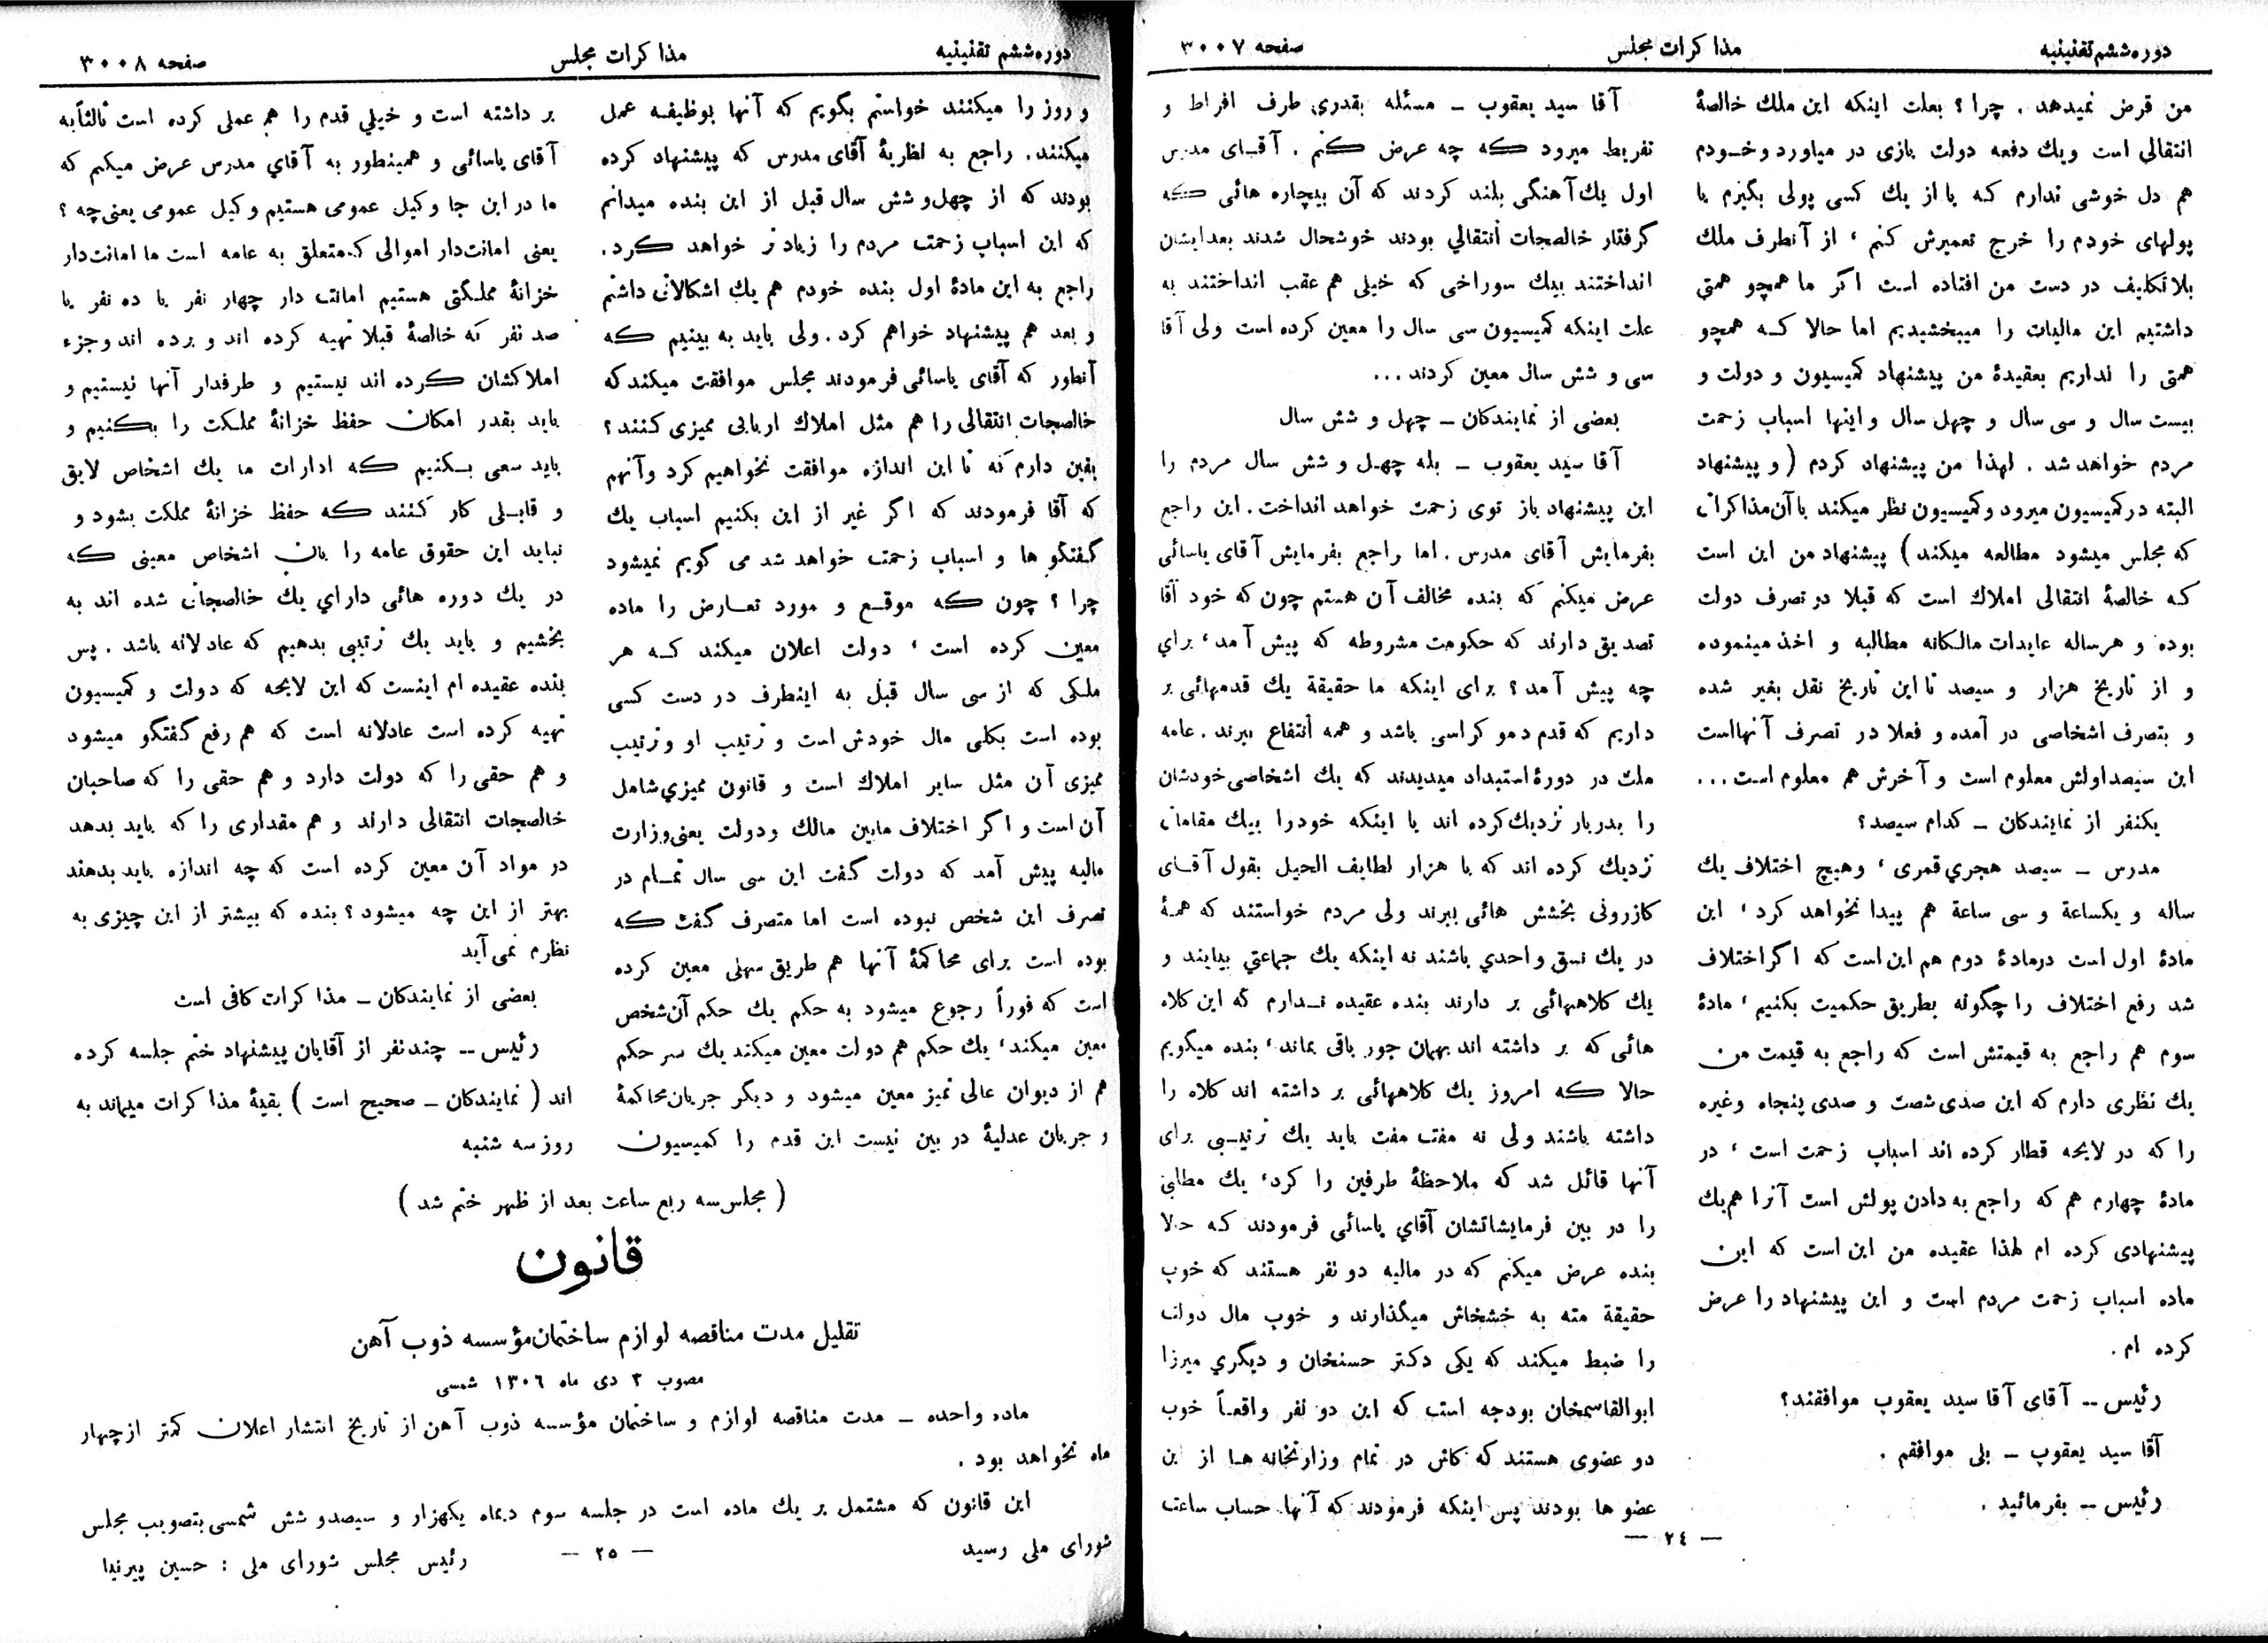 دوره ششم تقنینیه
مذاکرات مجلس
صفحه ۳۰۰۷
من قرض نمیدهد . چرا ؟ بعلت اینکه این ملك خالصهٔ
انتقالی است ویك دفعه دولت بازی در میاورد وخودم
هم دل خوشی ندارم که یا از یك کسی پولی بگیرم یا
پولهای خودم را خرج تعمیرش کنم ، از آنطرف ملك
بلاتکلیف در دست من افتاده است اگر ما همچو همتی
داشتیم این مالیات را میبخشیدیم اما حالا که همچو
همتی را نداریم بعقیدهٔ من پیشنهاد کمیسیون و دولت و
بیست سال و سی سال و چهل سال و اینها اسباب زحمت
مردم خواهد شد . لهذا من پیشنهاد کردم ( و پیشنهاد
البته در کمیسیون میرود و کمیسیون نظر میکند با آن مذاکراتی
که مجلس میشود مطالعه میکند ) پیشنهاد من این است
که خالصهٔ انتقالی املاك است که قبلا در تصرف دولت
بوده و هرساله عایدات مالکانه مطالبه و اخذ مینموده
و از تاریخ هزار و سیصد تا این تاریخ نقل بغیر شده
و بتصرف اشخاصی در آمده و فعلا در تصرف آنهااست
این سیصد اولش معلوم است و آخرش هم معلوم است ...
یکنفر از نمایندکان ــ کدام سیصد؟
مدرس ــ سیصد هجری قمری ، وهیچ اختلاف یك
ساله و یکساعة و سی ساعة هم پیدا نخواهد کرد ، این
مادهٔ اول است درمادهٔ دوم هم این است که اگر اختلاف
شد رفع اختلاف را چگونه بطریق حکمیت بکنیم ، مادهٔ
سوم هم راجع به قیمتش است که راجع به قیمت من
یك نظری دارم که این صدی شصت و صدی پنجاه وغیره
را که در لایحه قطار کرده اند اسباب زحمت است ، در
مادهٔ چهارم هم که راجع به دادن پولش است آنرا هم یك
پیشنهادی کرده ام لهذا عقیده من این است که این
ماده اسباب زحمت مردم است و این پیشنهاد را عرض
کرده ام .
رئیس ــ آقای آقا سید یعقوب موافقند؟
آقا سید یعقوب ــ بلی موافقم .
رئیس ــ بفرمائید .
آقا سید یعقوب ــ مسئله بقدری طرف افراط و
تفریط میرود که چه عرض کنم . آقای مدرس
اول یك آهنگی بلند کردند که آن بیچاره هائی که
گرفتار خالصجات انتقالی بودند خوشحال شدند بعد ایشان
انداختند بیك سوراخی که خیلی هم عقب انداختند به
علت اینکه کمیسیون سی سال را معین کرده است ولی آقا
سی و شش سال معین کردند ...
بعضی از نمایندکان ــ چهل و شش سال
آقا سید یعقوب ــ بله چهل و شش سال مردم را
این پیشنهاد باز توی زحمت خواهد انداخت . این راجع
بفرمایش آقای مدرس . اما راجع بفرمایش آقای یاسائی
عرض میکنم که بنده مخالف آن هستم چون که خود آقا
تصدیق دارند که حکومت مشروطه که پیش آمد ، برای
چه پیش آمد ؟ برای اینکه ما حقیقة یك قدمهائی بر
داریم که قدم دموکراسی باشد و همه انتفاع ببرند . عامه
ملت در دورهٔ استبداد میدیدند که یك اشخاصی خودشان
را بدربار نزدیك کرده اند یا اینکه خودرا بیك مقاماتی
نزدیك کرده اند که با هزار لطایف الحیل بقول آقای
کازرونی بخشش هائی ببرند ولی مردم خواستند که همهٔ
در یك نسق واحدی باشند نه اینکه یك جماعتی بیایند و
یك کلاههائی بر دارند بنده عقیده ندارم که این کلاه
هائی که بر داشته اند بهمان جور باقی بماند ، بنده میگویم
حالا که امروز یك کلاههائی بر داشته اند کلاه را
داشته باشند ولی نه مفت مفت باید یك ترتیبی برای
آنها قائل شد که ملاحظهٔ طرفین را کرد ، یك مطلبی
را در بین فرمایشاتشان آقای یاسائی فرمودند که حالا
بنده عرض میکنم که در مالیه دو نفر هستند که خوب
حقیقة مته به خشخاش میگذارند و خوب مال دولت
را ضبط میکند که یکی دکتر حسنخان و دیگری میرزا
ابوالقاسمخان بودجه است که این دو نفر واقعاً خوب
دو عضوی هستند که کاش در تمام وزارتخانه ها از این
عضو ها بودند پس اینکه فرمودند که آنها حساب ساعت
ــ ٢٤ ــ
دوره ششم تقنینیه
مذاکرات مجلس
صفحه ۳۰۰۸
و روز را میکنند خواستم بگویم که آنها بوظیفه عمل
میکنند . راجع به نظریهٔ آقای مدرس که پیشنهاد کرده
بودند که از چهل و شش سال قبل از این بنده میدانم
که این اسباب زحمت مردم را زیاد تر خواهد کرد .
راجع به این مادهٔ اول بنده خودم هم یك اشکالاتی داشتم
و بعد هم پیشنهاد خواهم کرد . ولی باید به بینیم که
آنطور که آقای یاسائی فرمودند مجلس موافقت میکند که
خالصجات انتقالی را هم مثل املاك اربابی ممیزی کنند ؟
یقین دارم که تا این اندازه موافقت نخواهیم کرد وآنهم
که آقا فرمودند که اگر غیر از این بکنیم اسباب یك
گفتگو ها و اسباب زحمت خواهد شد می گویم نمیشود
چرا ؟ چون که موقع و مورد تعارض را ماده
معین کرده است ، دولت اعلان میکند که هر
ملکی که از سی سال قبل به اینطرف در دست کسی
بوده است بکلی مال خودش است و ترتیب او وترتیب
ممیزی آن مثل سایر املاك است و قانون ممیزی شامل
آن است و اگر اختلاف مابین مالك ودولت یعنی وزارت
مالیه پیش آمد که دولت گفت این سی سال تمام در
تصرف این شخص نبوده است اما متصرف گفت که
بوده است برای محاکمهٔ آنها هم طریق سهلی معین کرده
است که فوراً رجوع میشود به حکم یك حکم آن شخص
معین میکند ، یك حکم هم دولت معین میکند یك سر حکم
هم از دیوان عالی تمیز معین میشود و دیگر جریان محاکمهٔ
و جریان عدلیهٔ در بین نیست این قدم را کمیسیون
بر داشته است و خیلی قدم را هم عملی کرده است ثالثاً به
آقای یاسائی و همینطور به آقای مدرس عرض میکنم که
ما در این جا وکیل عمومی هستیم وکیل عمومی یعنی چه ؟
یعنی امانت‌دار اموالی که متعلق به عامه است ما امانت‌دار
خزانهٔ مملکتی هستیم امانت دار چهار نفر یا ده نفر یا
صد نفر که خالصهٔ قبلا تهیه کرده اند و برده اند وجزء
املاکشان کرده اند نیستیم و طرفدار آنها نیستیم و
باید بقدر امکان حفظ خزانهٔ مملکت را بکنیم و
باید سعی بکنیم که ادارات ما یك اشخاص لایق
و قابلی کار کنند که حفظ خزانهٔ مملکت بشود و
نباید این حقوق عامه را بان اشخاص معینی که
در یك دوره هائی دارای یك خالصجاتی شده اند به
بخشیم و باید یك ترتیبی بدهیم که عادلانه باشد . پس
بنده عقیده ام اینست که این لایحه که دولت و کمیسیون
تهیه کرده است عادلانه است که هم رفع گفتگو میشود
و هم حقی را که دولت دارد و هم حقی را که صاحبان
خالصجات انتقالی دارند و هم مقداری را که باید بدهد
در مواد آن معین کرده است که چه اندازه باید بدهند
بهتر از این چه میشود ؟ بنده که بیشتر از این چیزی به
نظرم نمی آید
بعضی از نمایندکان ــ مذاکرات کافی است
رئیس ــ چند نفر از آقایان پیشنهاد ختم جلسه کرده
اند ( نمایندکان ــ صحیح است ) بقیهٔ مذاکرات میماند به
روز سه شنبه
( مجلس سه ربع ساعت بعد از ظهر ختم شد )
قانون
تقلیل مدت مناقصه لوازم ساختمان مؤسسه ذوب آهن
مصوب ۳ دی ماه ۱۳۰٦ شمسی
ماده واحده ــ مدت مناقصه لوازم و ساختمان مؤسسه ذوب آهن از تاریخ انتشار اعلان کمتر از چهار
ماه نخواهد بود .
این قانون که مشتمل بر یك ماده است در جلسه سوم دیماه یکهزار و سیصدو شش شمسی بتصویب مجلس
شورای ملی رسید
رئیس مجلس شورای ملی : حسین پیرنیا
ــ ٢٥ ــ